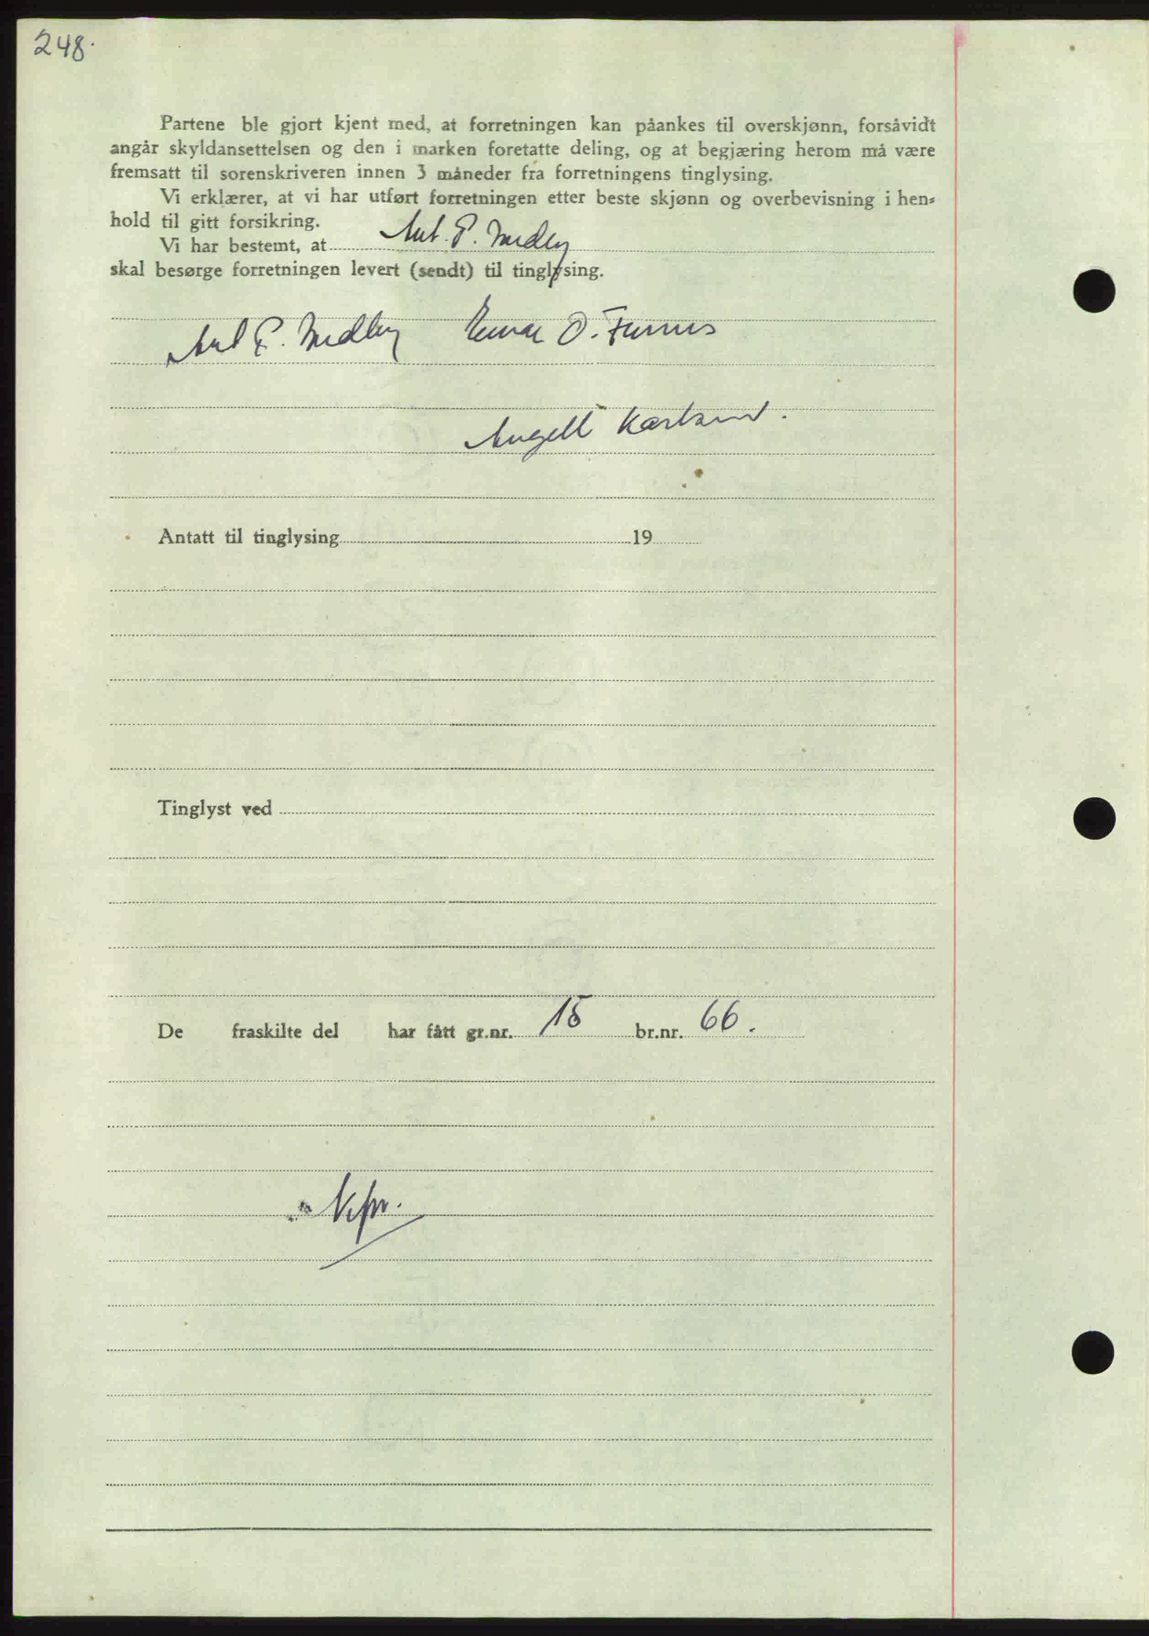 248.
Partene ble gjort kjent med, at forretningen kan påankes til overskjønn, forsåvidt
angår skyldansettelsen og den i marken foretatte deling, og at begjæring herom må være
fremsatt til sorenskriveren innen 3 måneder fra forretningens tinglysing.
Vi erklærer, at vi har utført forretningen etter beste skjønn og overbevisning i hen=
hold til gitt forsikring.
Vi har bestemt, at Ant. P.
skal besørge forretningen levert (sendt) til tinglysing.
Ant P. O. Furnes
Angell
Antatt til tinglysing 19
Tinglyst ved
De fraskilte del har fått gr.nr. 15 br.nr. 66.